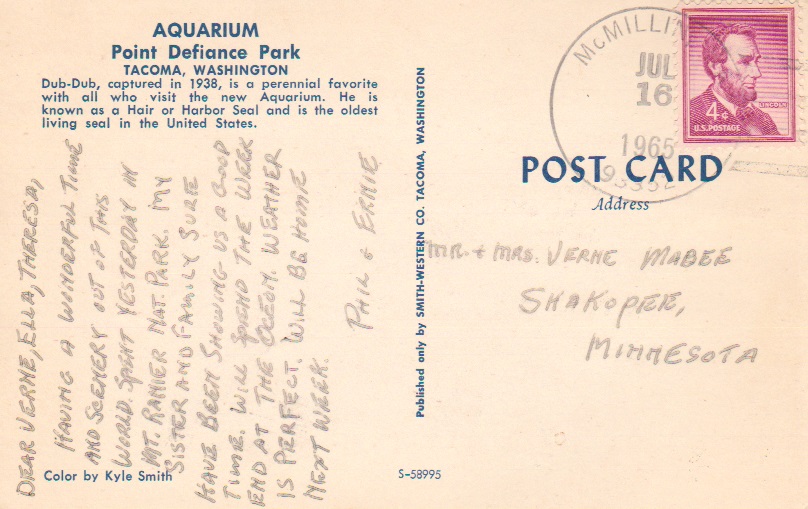 AQUARIUM
Point Defiance Park
TACOMA, WASHINGTON
Dub-Dub, captured in 1938, is a perennial favorite
with all who visit the new Aquarium. He is
known as a Hair or Harbor Seal and is the oldest
living seal in the United States.
DEAR VERNE, ELLA, THERESA,
HAVING A WONDERFUL TIME
AND SCENERY OUT OF THIS
WORLD. SPENT YESTERDAY IN
MT. RANIER NAT. PARK. MY
SISTER AND FAMILY SURE
HAVE BEEN SHOWING US A GOOD
TIME. WILL SPEND THE WEEK
END AT THE OCEAN. WEATHER
IS PERFECT. WILL BE HOME
NEXT WEEK.
PHIL & ERNIE
Color by Kyle Smith
S-58995
Published only by SMITH-WESTERN CO. TACOMA, WASHINGTON
McMILLIN
JUL
16
1965
4¢
LINCOLN
U.S. POSTAGE
POST CARD
Address
MR. + MRS. VERNE MABEE
SHAKOPEE,
MINNESOTA